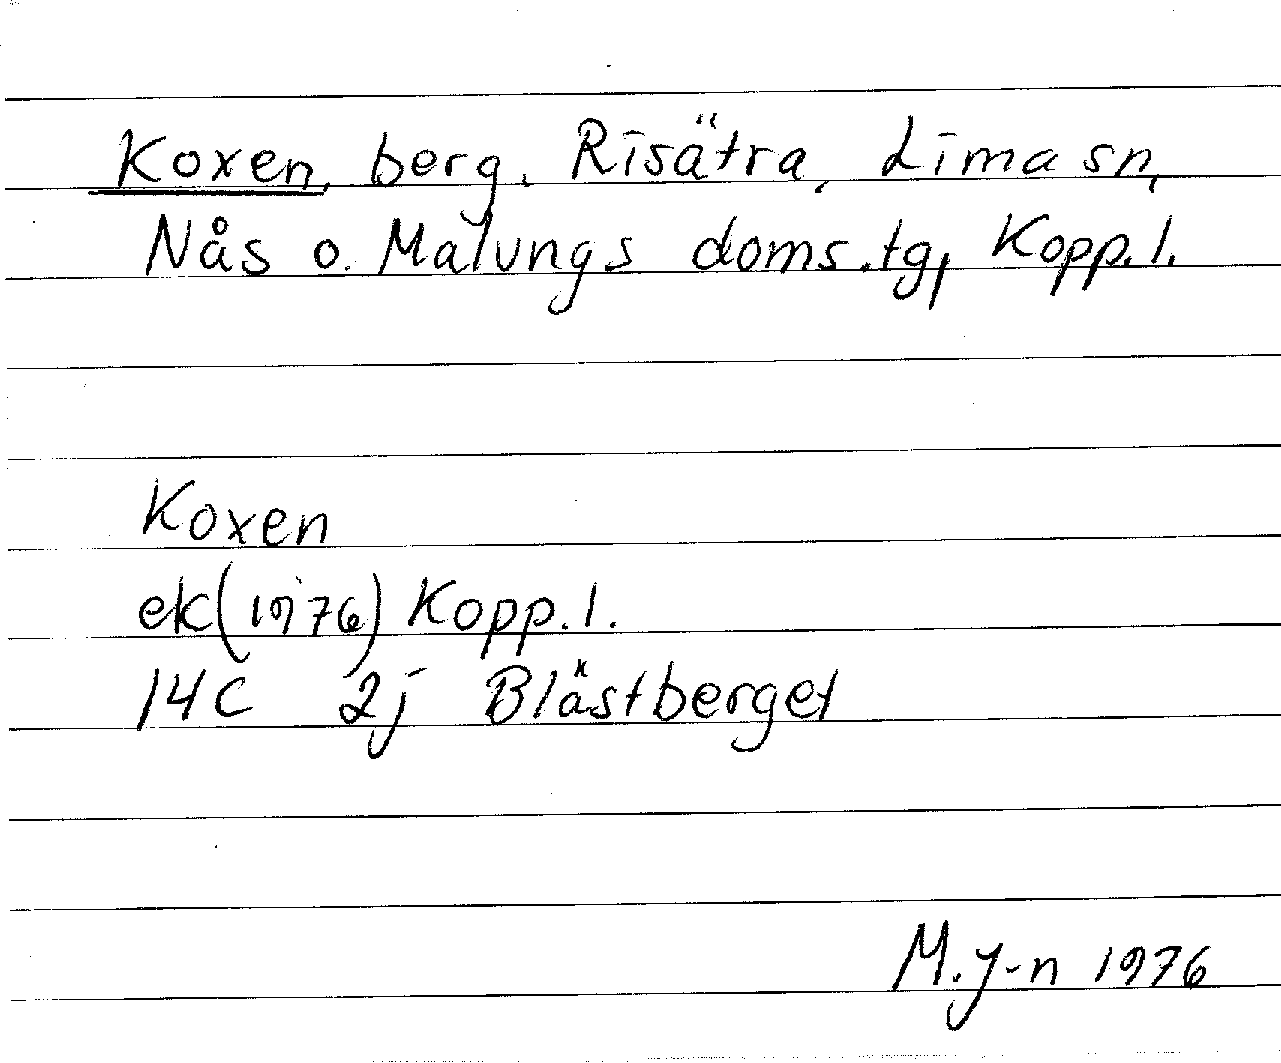 Koxen, berg. Risätra, Lima sn,
Nås o. Malungs doms.tg, Kopp.l.
Koxen
ek(1976) Kopp.l.
14C 2j Blästberget
M.J-n 1976